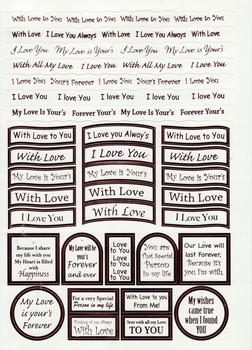 With Love to You With Love to You With Love to You
With Love I Love You Always With Love I Love You Always
I Love You My Love is Your's I Love You My Love is Your's
With All My Love I Love You With All My Love I Love You
I Love You Your's Forever I Love You Your's Forever
I Love You I love You I Love You I Love You
My Love Is Your's Forever Your's My Love Is Your's Forever Your's
With Love to You
I Love you Alway's
With Love to You
With Love
I Love You
With Love
My Love is Your's
My Love is Your's
My Love is Your's
With Love
With Love
With Love
I Love You
I Love You
I Love You
Because I
share my life
with you
My Heart is filled
with
Happiness
My Love will be
your's
Forever
and ever
Love
to You
Love
to You
Love
to You
You are
that Special
Person
in my life
Our Love will
last Forever,
Because it's
you I'm with
My Love
is your's
Forever
For a very Special
Person in my life
With Love to you
From Me!
Thinking of you Always
With Love
Sent with all my Love
TO YOU
My wishes
came true
when I found
YOU